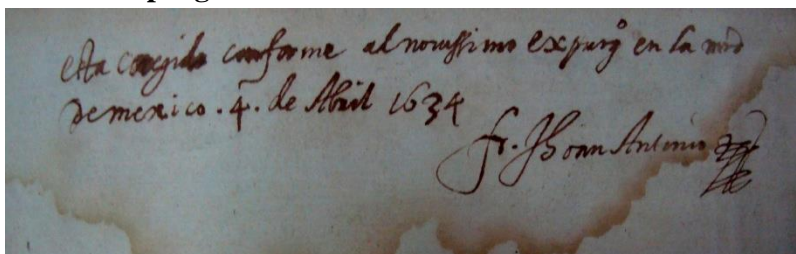 esta corregido conforme al novissimo expurgº en la
de mexico . 4 . de Abril 1634
fr. Jhoan Antonio